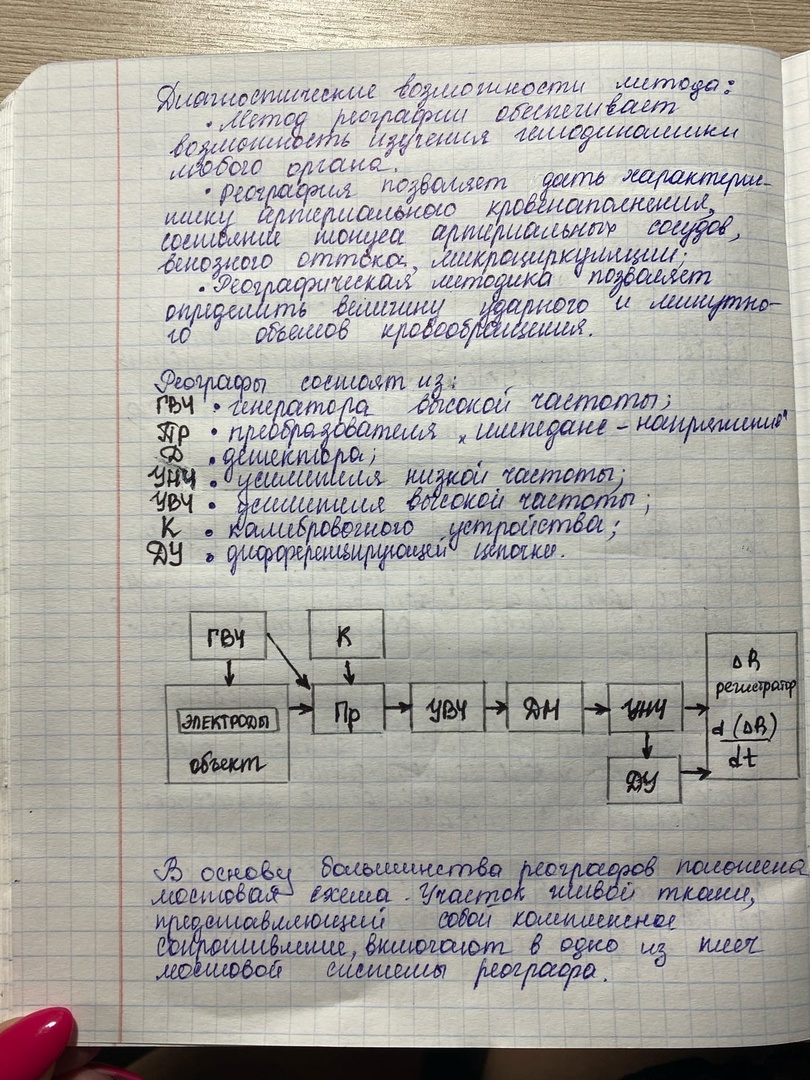 Диагностические возможности метода:
• Метод реографии обеспечивает
возможность изучения гемодинамики
любого органа.
• Реография позволяет дать характерис-
тику артериального кровенаполнения,
состояние тонуса артериальных сосудов,
венозного оттока, микроциркуляции;
• Реографическая методика позволяет
определить величину ударного и минутно-
го объемов кровообращения.
Реографы состоят из:
ГВЧ • генератора высокой частоты;
Пр • преобразователя „импеданс - напряжение"
Д • детектора;
УНЧ • усилителя низкой частоты;
УВЧ • усилителя высокой частоты;
К • калибровочного устройства;
ДУ • дифференцирующей цепочки.
ГВЧ К
ΔR
регистратор
d(ΔR)
dt
ЭЛЕКТРОДЫ
объект
Пр УВЧ ДМ УНЧ
ДУ
В основу большинства реографов положена
мостовая схема. Участок живой ткани,
представляющей собой комплексное
сопротивление, включают в одно из плеч
мостовой системы реографа.